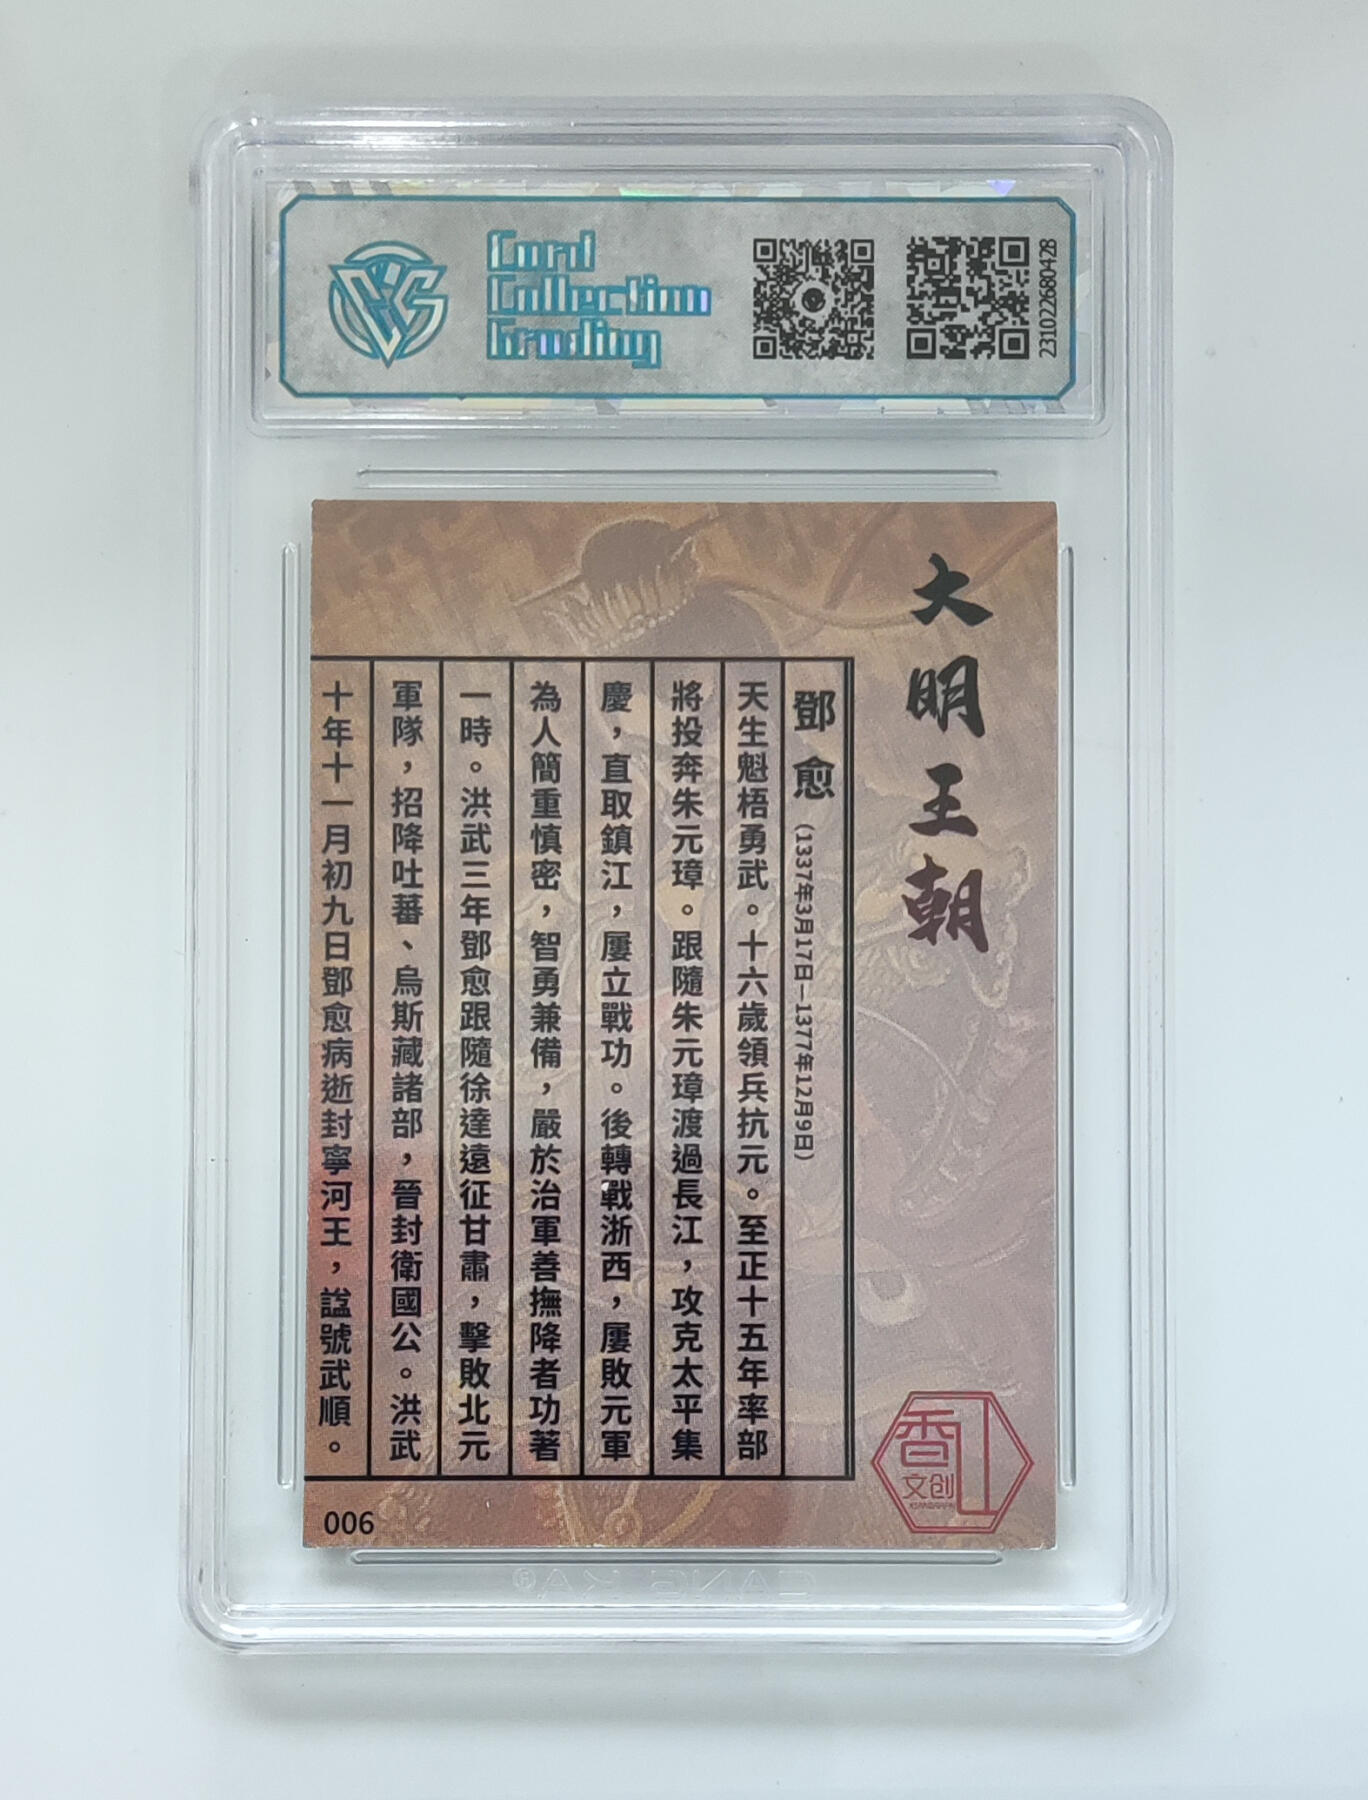 Card
Collection
Grading
CCG
231022680428
大明王朝
鄧愈(1337年3月17日—1377年12月9日)
天生魁梧勇武。十六歲領兵抗元。至正十五年率部
將投奔朱元璋。跟隨朱元璋渡過長江，攻克太平集
慶，直取鎮江，屢立戰功。後轉戰浙西，屢敗元軍
為人簡重慎密，智勇兼備，嚴於治軍善撫降者功著
一時。洪武三年鄧愈跟隨徐達遠征甘肅，擊敗北元
軍隊，招降吐蕃、烏斯藏諸部，晉封衛國公。洪武
十年十一月初九日鄧愈病逝封寧河王，諡號武順。
006
文创
CANG KA®